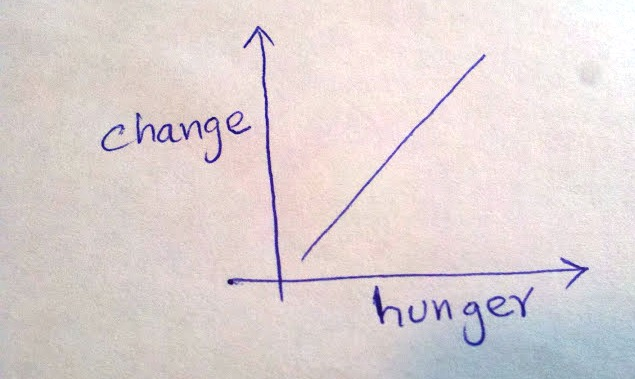 change
hunger